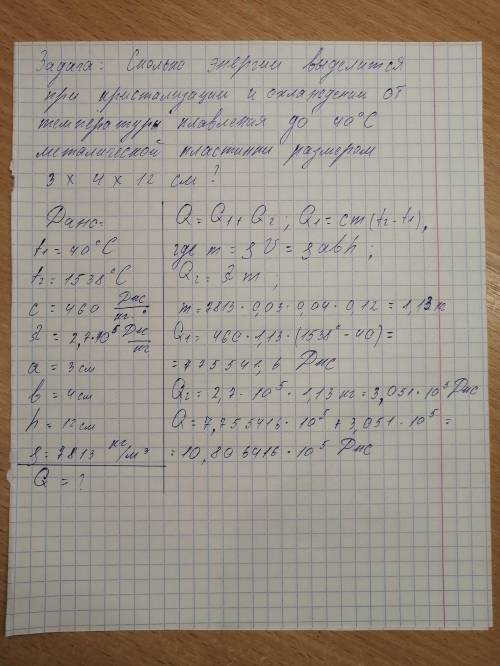 Задача: Сколько энергии выделится
при кристализации и охлаждении от
температуры плавления до 40°C
металической пластинки размером
3 x 4 x 12 см?
Дано:
t₁ = 40°C
t₂ = 1538°C
c = 460 Дж/кг·°
λ = 2,7·10⁵ Дж/кг
a = 3 см
b = 4 см
h = 12 см
ρ = 7813 кг/м³
Q = ?
Q = Q₁ + Q₂ ; Q₁ = cm(t₂ - t₁),
где m = ρV = ρabh ;
Q₂ = λm ;
m = 7813 · 0,03 · 0,04 · 0,12 = 1,13 кг
Q₁ = 460 · 1,13 · (1538° - 40) =
= 775541,6 Дж
Q₂ = 2,7 · 10⁵ · 1,13 кг = 3,051 · 10⁵ Дж
Q = 7,755416 · 10⁵ + 3,051 · 10⁵ =
= 10,806416 · 10⁵ Дж